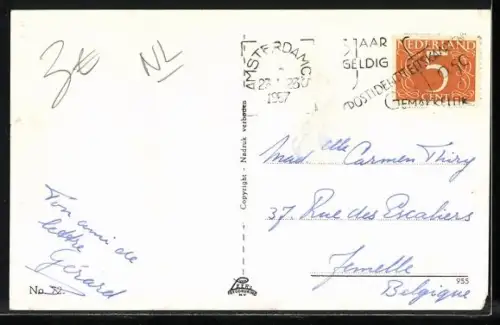 3€ NL
AMSTERDAM CS
1957
JAAR
GELDIG
NEDERLAND
5
CENT
Copyright - Nadruk verboden
Mad elle Carmen Thiry
37, Rue des Escaliers
Jemelle
Belgique
Ton ami de
lettre
Gérard
No.
955